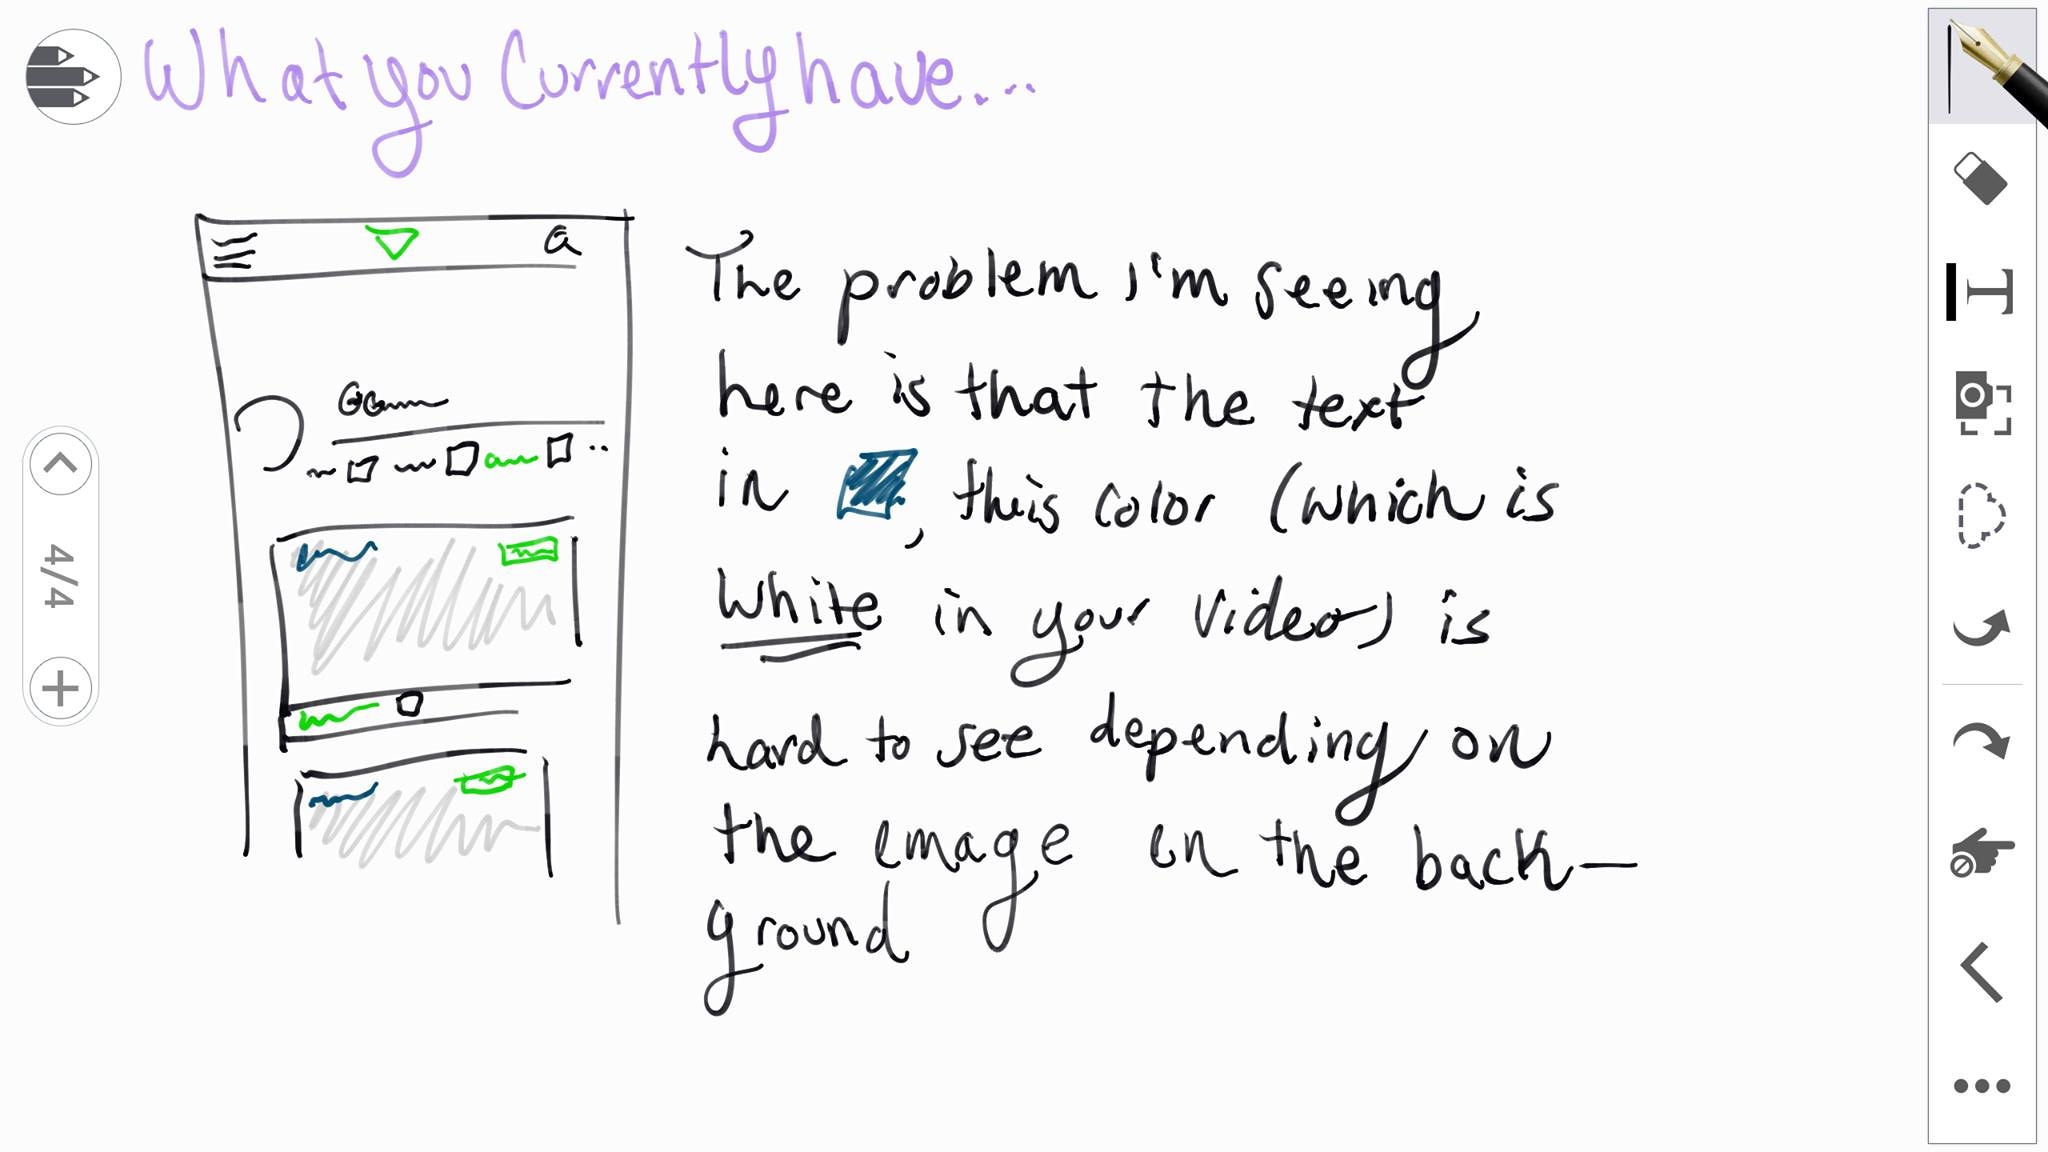 What you Currently have...
The problem I'm seeing
here is that the text
in , this color (which is
White in your video) is
hard to see depending on
the image in the back-
ground
4/4
T